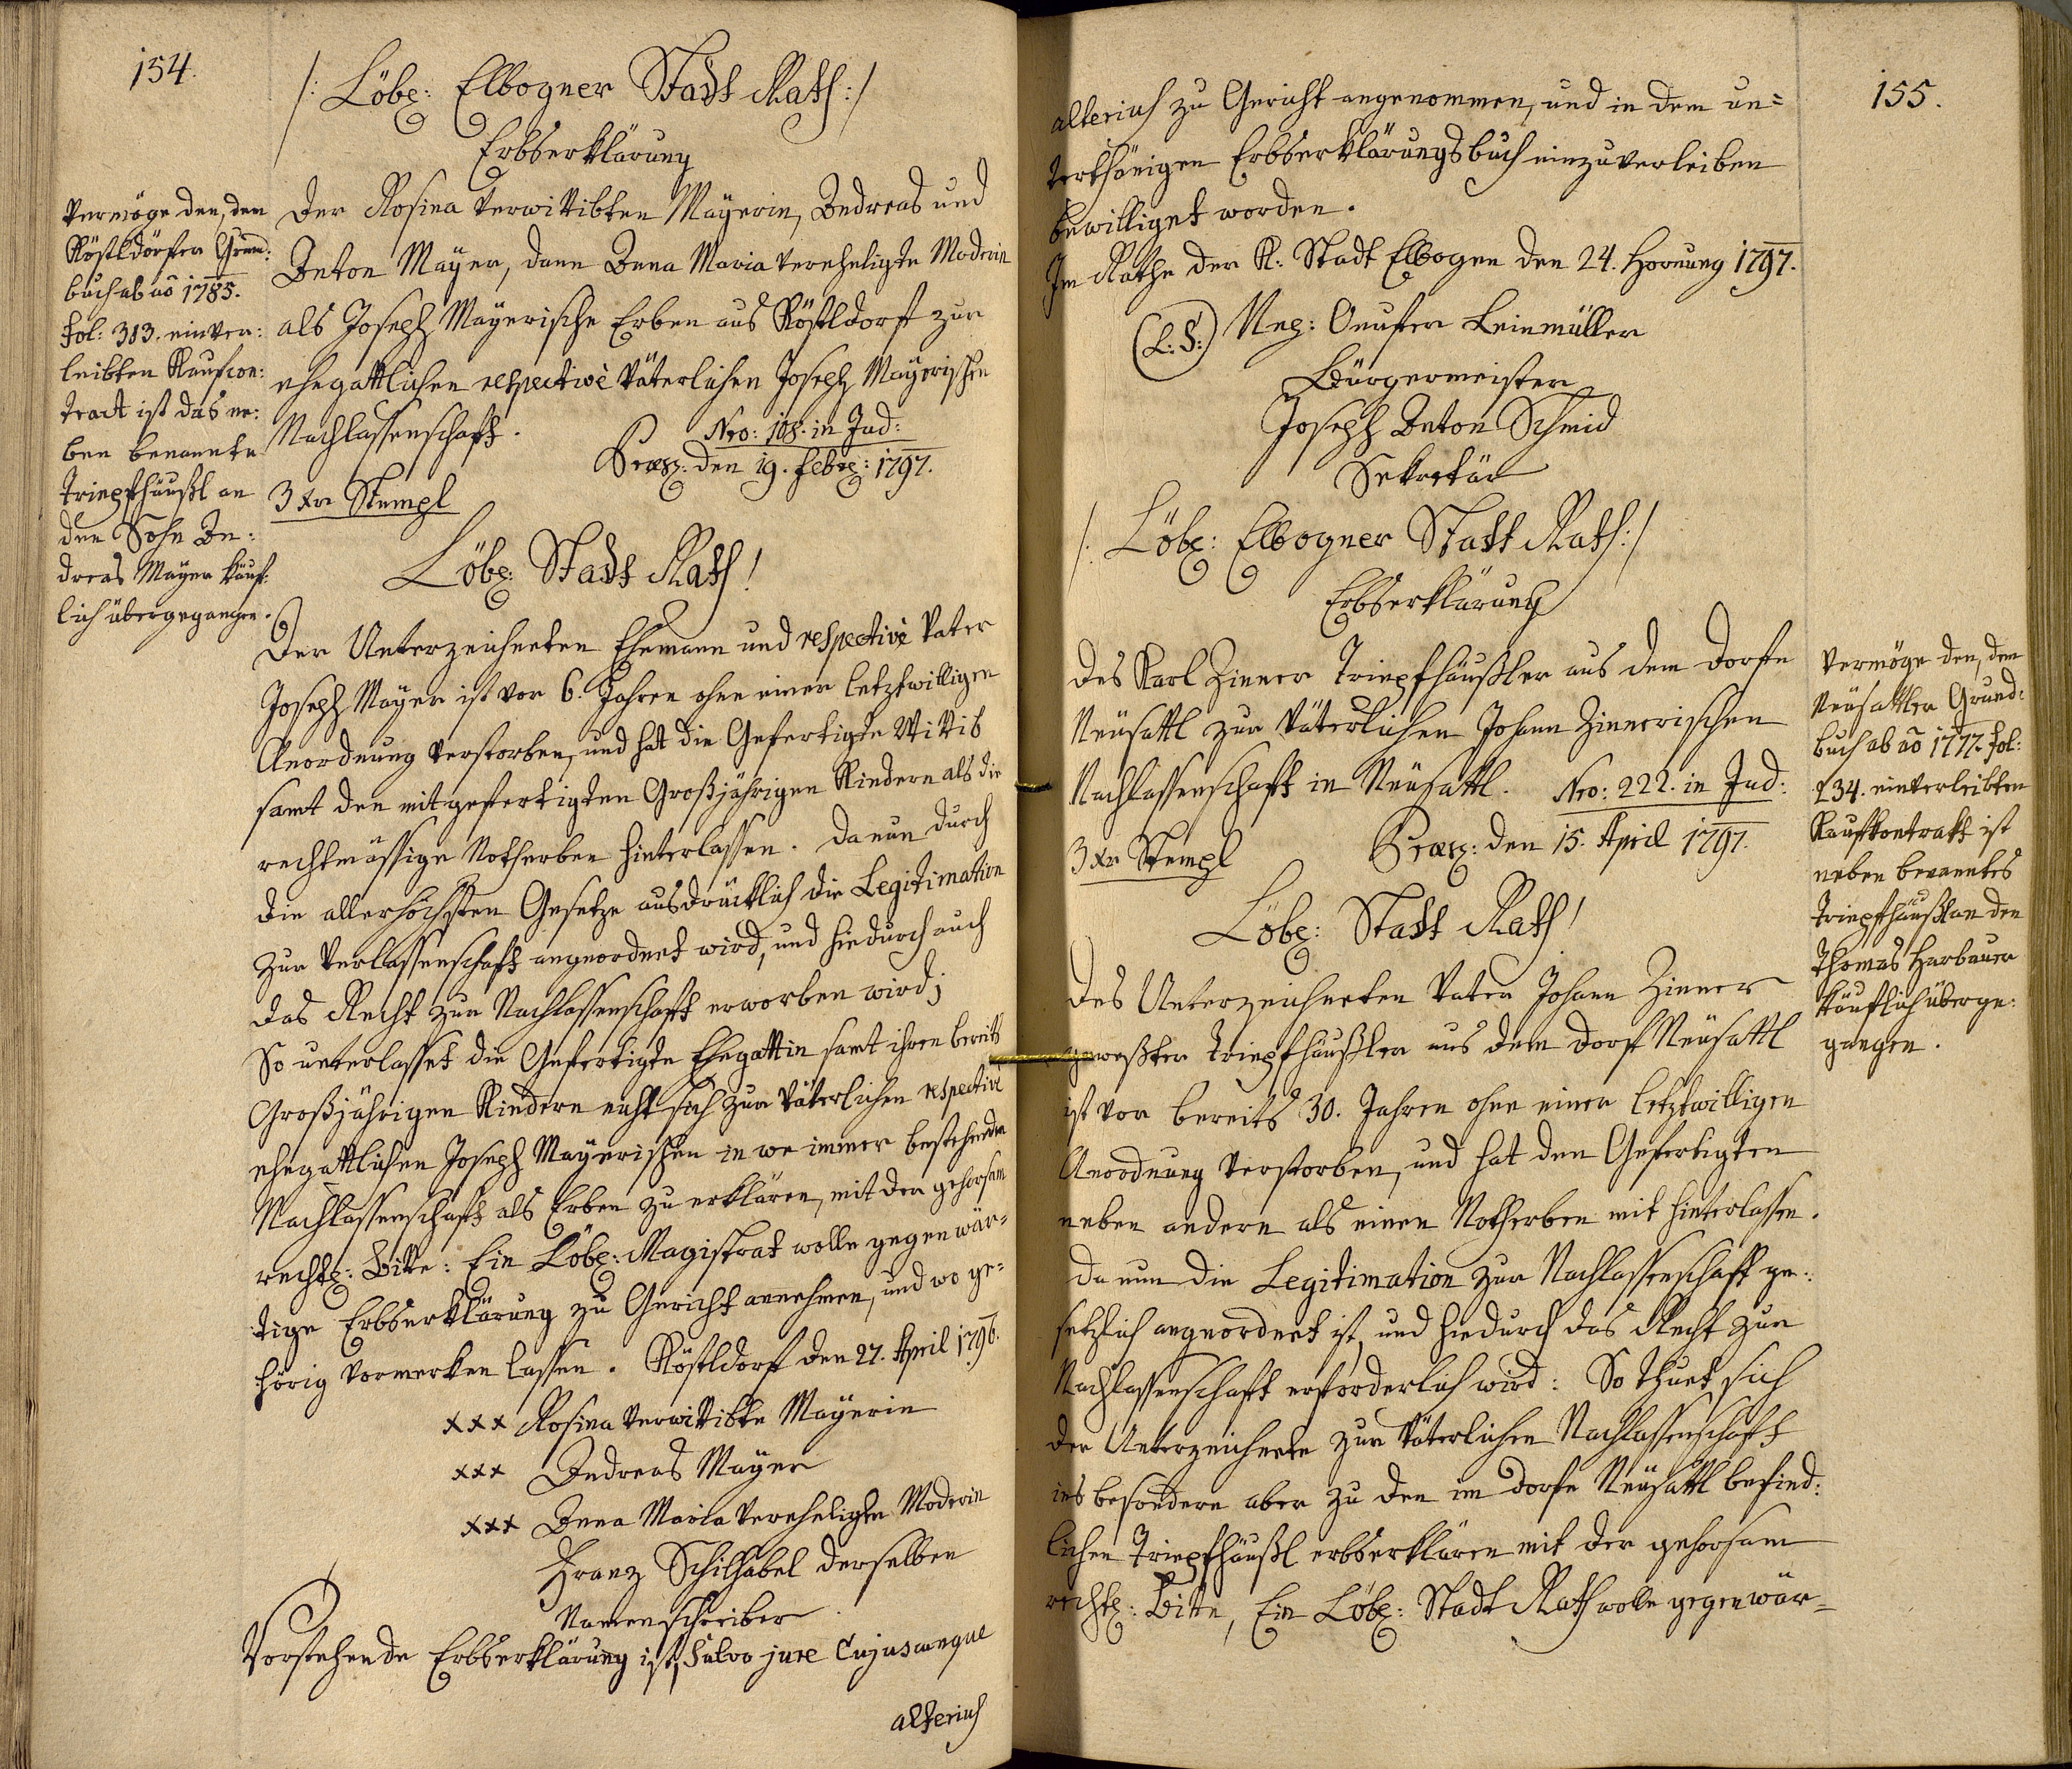 154.
/: Löbl: Elbogner Stadt Rath :/
Erbserklärung
Der Rosina verwittibten Mayerin, Andreas und
Anton Mayer, dann Anna Maria vereheligte Moderin
als Joseph Mayerische Erben aus Röstldorf zur
ehegattlichen respective väterlichen Joseph Mayerischen
Nachlassenschaft.
Nro: 108. in Jud:
Præs: den 19. Febr: 1797.
3 Xr Stempl
Vermöge den, dem
Röstldörfer Grund:
buch ab aõ 1785.
fol: 313. einver:
leibten Kaufcon:
tract ist das ne:
ben benannte
Triepfhäußl an
den Sohn An:
dreas Mayer käuf:
lich übergegangen.
Löbl: Stadt Rath!
Der Unterzeichneten Ehemann und respective Vater
Joseph Mayer ist vor 6. Jahren ohne einer letztwilligen
Anordnung verstorben, und hat die Gefertigte Wittib
samt den mitgefertigten Großjährigen Kindern als die
rechtmässige Notherben hinterlassen. Da nun durch
die allerhöchsten Gesetze ausdrücklich die Legitimation
zur Verlassenschaft angeordnet wird, und hiedurch auch
das Recht zur Nachlassenschaft erworben wird;
So unterlasset die Gefertigte Ehegattin samt ihren bereits
Großjährigen Kindern nicht sich zur väterlichen respective
ehegattlichen Joseph Mayerischen in we immer bestehenden
Nachlassenschaft als Erben zu erklären, mit der gehorsam
rechtl: Bitte: Ein Löbl: Magistrat wolle gegenwär=
tige Erbserklärung zu Gericht annehmen, und wo ge=
hörig vormerken lassen. Röstldorf den 27. April 1796.
xxx Rosina verwittibte Mayerin
xxx Andreas Mayer
xxx Anna Maria verehelighte Moderin
Franz Schilhabel derselben
Namenschreiber
Vorstehende Erbserklärung ist, salvo jure Cujuscunque
alterius
155.
alterius zu Gericht angenommen, und in dem un=
terthänigen Erbserklärungsbuch einzuverleiben
bewilliget worden.
Im Rathe der K: Stadt Elbogen den 24. Hornung 1797.
(L: S:)
Leinmüller
Bürgermeister
Joseph Anton Schmid
Sekretär
/: Löbl: Elbogner Stadt Rath :/
Erbserklärung
Des Karl Zinner Triepfhäußler aus dem Dorfe
Neusattl zur väterlichen Johann Zinnerischen
Nachlassenschaft in Neusattl.
Nro: 222. in Jud:
Præs: den 15. April 1797.
3 Xr Stempl
Vermöge den, dem
Neusattler Grund:
buch ab aõ 1777. fol:
234. einverleibten
Kaufkontrakt ist
neben benanntes
Triepfhäußl an den
Thomas Harbauer
käuflich überge:
gangen.
Löbl: Stadt Rath!
Des Unterzeichneten Vater Johann Zinner
geweßter Triepfhäußler aus dem Dorf Neusattl
ist vor bereits 30. Jahren ohne einer letztwilligen
Anordnung verstorben, und hat den Gefertigten
neben andern als einen Notherben mit hinterlassen.
Da nun die Legitimation zur Nachlassenschaft ge:
setzlich angeordnet ist, und hiedurch das Recht zur
Nachlassenschaft erforderlich wird: So thuet sich
der Unterzeichnete zur väterlichen Nachlassenschaft
ins besondere aber zu den im Dorfe Neusattl befind:
lichen Triepfhäußl erbserklären mit der gehorsam
rechtl: Bitte, Ein Löbl: Stadt Rath wolle gegenwär=